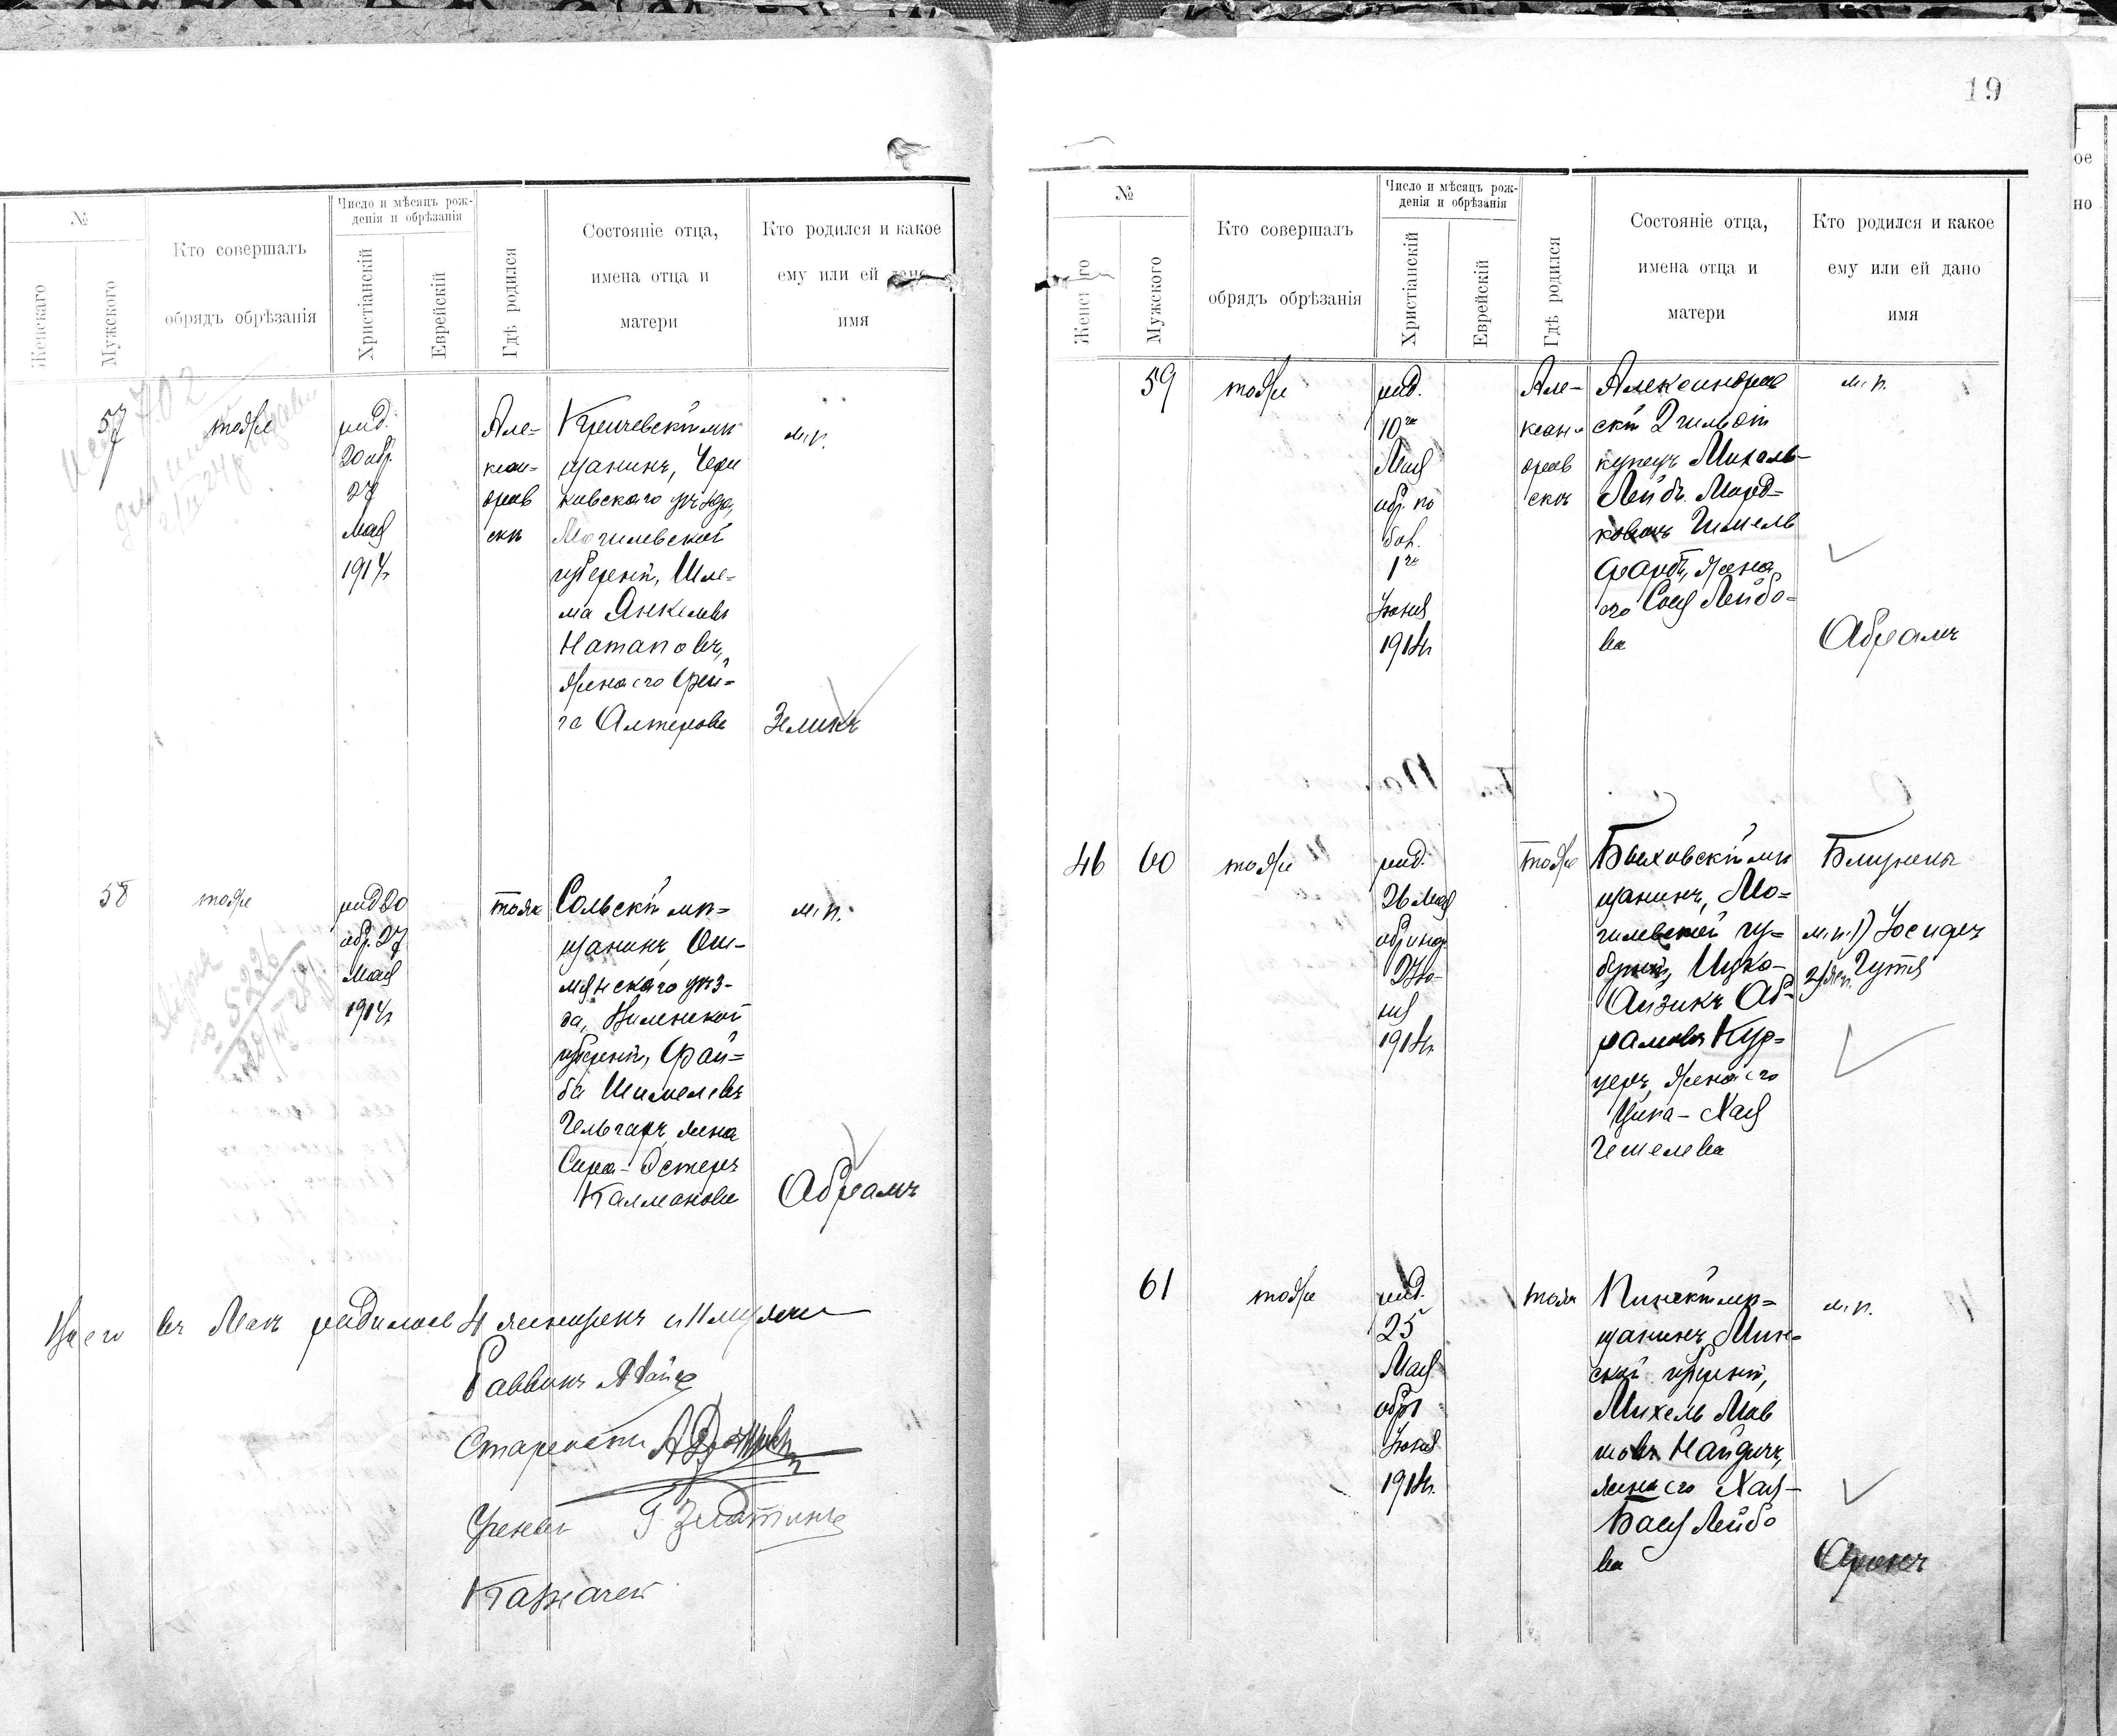 №
Женскаго
Мужского
Кто совершалъ
обрядъ обрѣзанія
Число и мѣсяцъ рож-
денія и обрѣзанія
Христіанскій
Еврейскій
Гдѣ родился
Состояніе отца,
имена отца и
матери
Кто родился и какое
ему или ей дано
имя
57
тоже
род.
20 обр.
27
Мая
1914 г.
Але-
ксан-
дров
скѣ
Кричевскій мѣ
щанинъ, Чери
ковскаго уѣзда,
Могилевской
губерніи, Шле-
ма Янкелевъ
Натаповъ,
жена его Фрей-
га Алтерова
м. п.
Зеликъ
58
тоже
род 20
обр. 27
Мая
1914 г.
тоже
Сольскій мѣ-
щанинъ, Ош-
мянскаго уѣз-
да, Виленской
губерніи, Фай-
ба Шимелевъ
Гельгаръ, жена
Сира-Эстеръ
Калманова
м. п.
Абрамъ
Всего въ Маѣ родилось 4 женщинъ и 11 мужчи
Раввинъ
Староста
Ученый
Казначей
19
№
Женскаго
Мужского
Кто совершалъ
обрядъ обрѣзанія
Число и мѣсяцъ рож-
денія и обрѣзанія
Христіанскій
Еврейскій
Гдѣ родился
Состояніе отца,
имена отца и
матери
Кто родился и какое
ему или ей дано
имя
59
тоже
род.
10 го
Мая
обр. по
бол.
1 го
Іюня
1914 г.
Але-
ксан
дров
скъ
Александров
скій 2 гильдіи
купецъ Михель-
Лейбъ Морд-
ковъ Гимель
фарбъ, жена
его Соня Лейбо-
ва
м. п.
Абрамъ
46
60
тоже
род.
26 Мая
2 Ію-
ня
1914 г.
тоже
Быховскій мѣ
щанинъ, Мо-
гилевской гу-
берніи, Ицко-
Айзикъ Аб-
рамовъ Кур-
церъ, жена его
Цина-Хая
Гешелева
Близнецы
м. п. 1) Іосифъ
2) жен. Гутя
61
тоже
род.
25
Мая
обр 1
Іюня
1914 г.
тоже
Пинскій мѣ-
щанинъ, Мин-
ской губерніи,
Михель Мов
шовъ Найдичъ,
жена его Хая-
Бася Лейбо
ва
м. п.
Аронъ